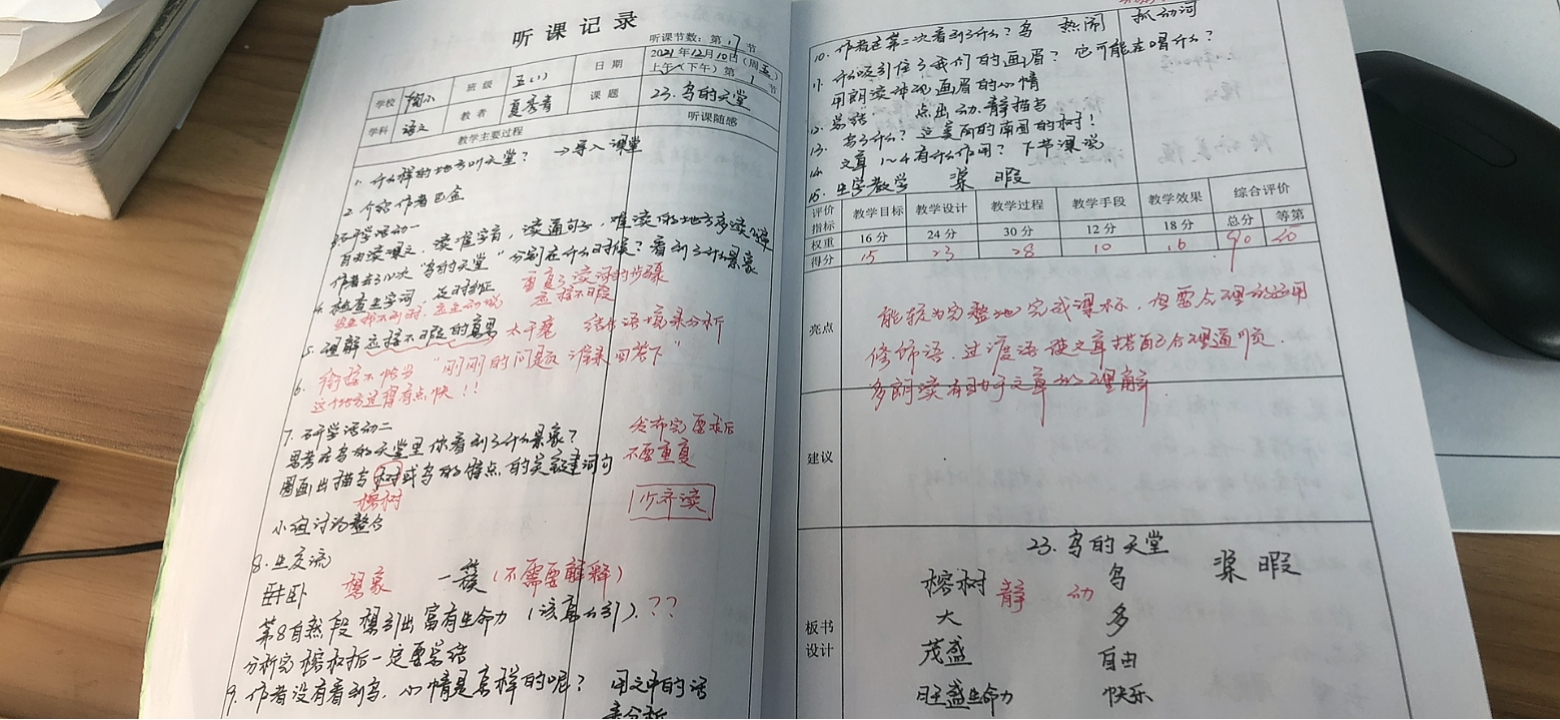 听课记录
听课节数：第17节
学校 班级 五(1) 日期 2021年12月10日（周五）
上午（下午）第1节
学科 语文 教者 夏秀青 课题 23.鸟的天堂
教学主要过程 听课随感
1. 什么样的地方叫天堂？ →导入课堂
2. 介绍作者巴金
研学活动一
自由读课文，读准字音，读通句子，难读的地方多读几遍
作者去了几次“鸟的天堂”分别在什么时候？看到了什么景象
4. 检查生字词，及时纠正 重复了读词的步骤
应接不暇
5. 理解应接不暇的意思 太干瘪 结合语境来分析
6. 衔接不恰当 “刚刚的问题谁来回答下”
这个地方进得有点快！！
7. 研学活动二
思考在鸟的天堂里你看到了什么景象？
圈画出描写树或鸟的特点的关键词句
榕树
小组讨论整合
发布完要求后
不要重复
少齐读
8. 生交流
卧 想象 一簇（不需要解释）
第8自然段 想引出富有生命力（该怎么引）？？
分析完榕树后一定要总结
9. 作者没有看到鸟，心情是怎样的呢？ 用文中的话
来分析
10. 作者在第二次看到了什么？鸟 热闹 抓动词
11. 什么吸引住了我们的画眉？它可能在唱什么？
用朗读体现画眉的心情
12. 总结 点出动、静描写
13. 写了什么？这美丽的南国的树！
14. 文章1~4有什么作用？下节课说
15. 生字教学 桨 暇
评价指标 教学目标 教学设计 教学过程 教学手段 教学效果 综合评价
权重 16分 24分 30分 12分 18分 总分 等第
得分 15 23 28 10 16 90
亮点
能较为完整地完成课标，但要合理的运用
修饰语、过渡语使文章搭配合理通顺.
多朗读有助于文章的理解
建议
板书设计
23.鸟的天堂
榕树 静 动 鸟 桨 暇
大 多
茂盛 自由
旺盛生命力 快乐